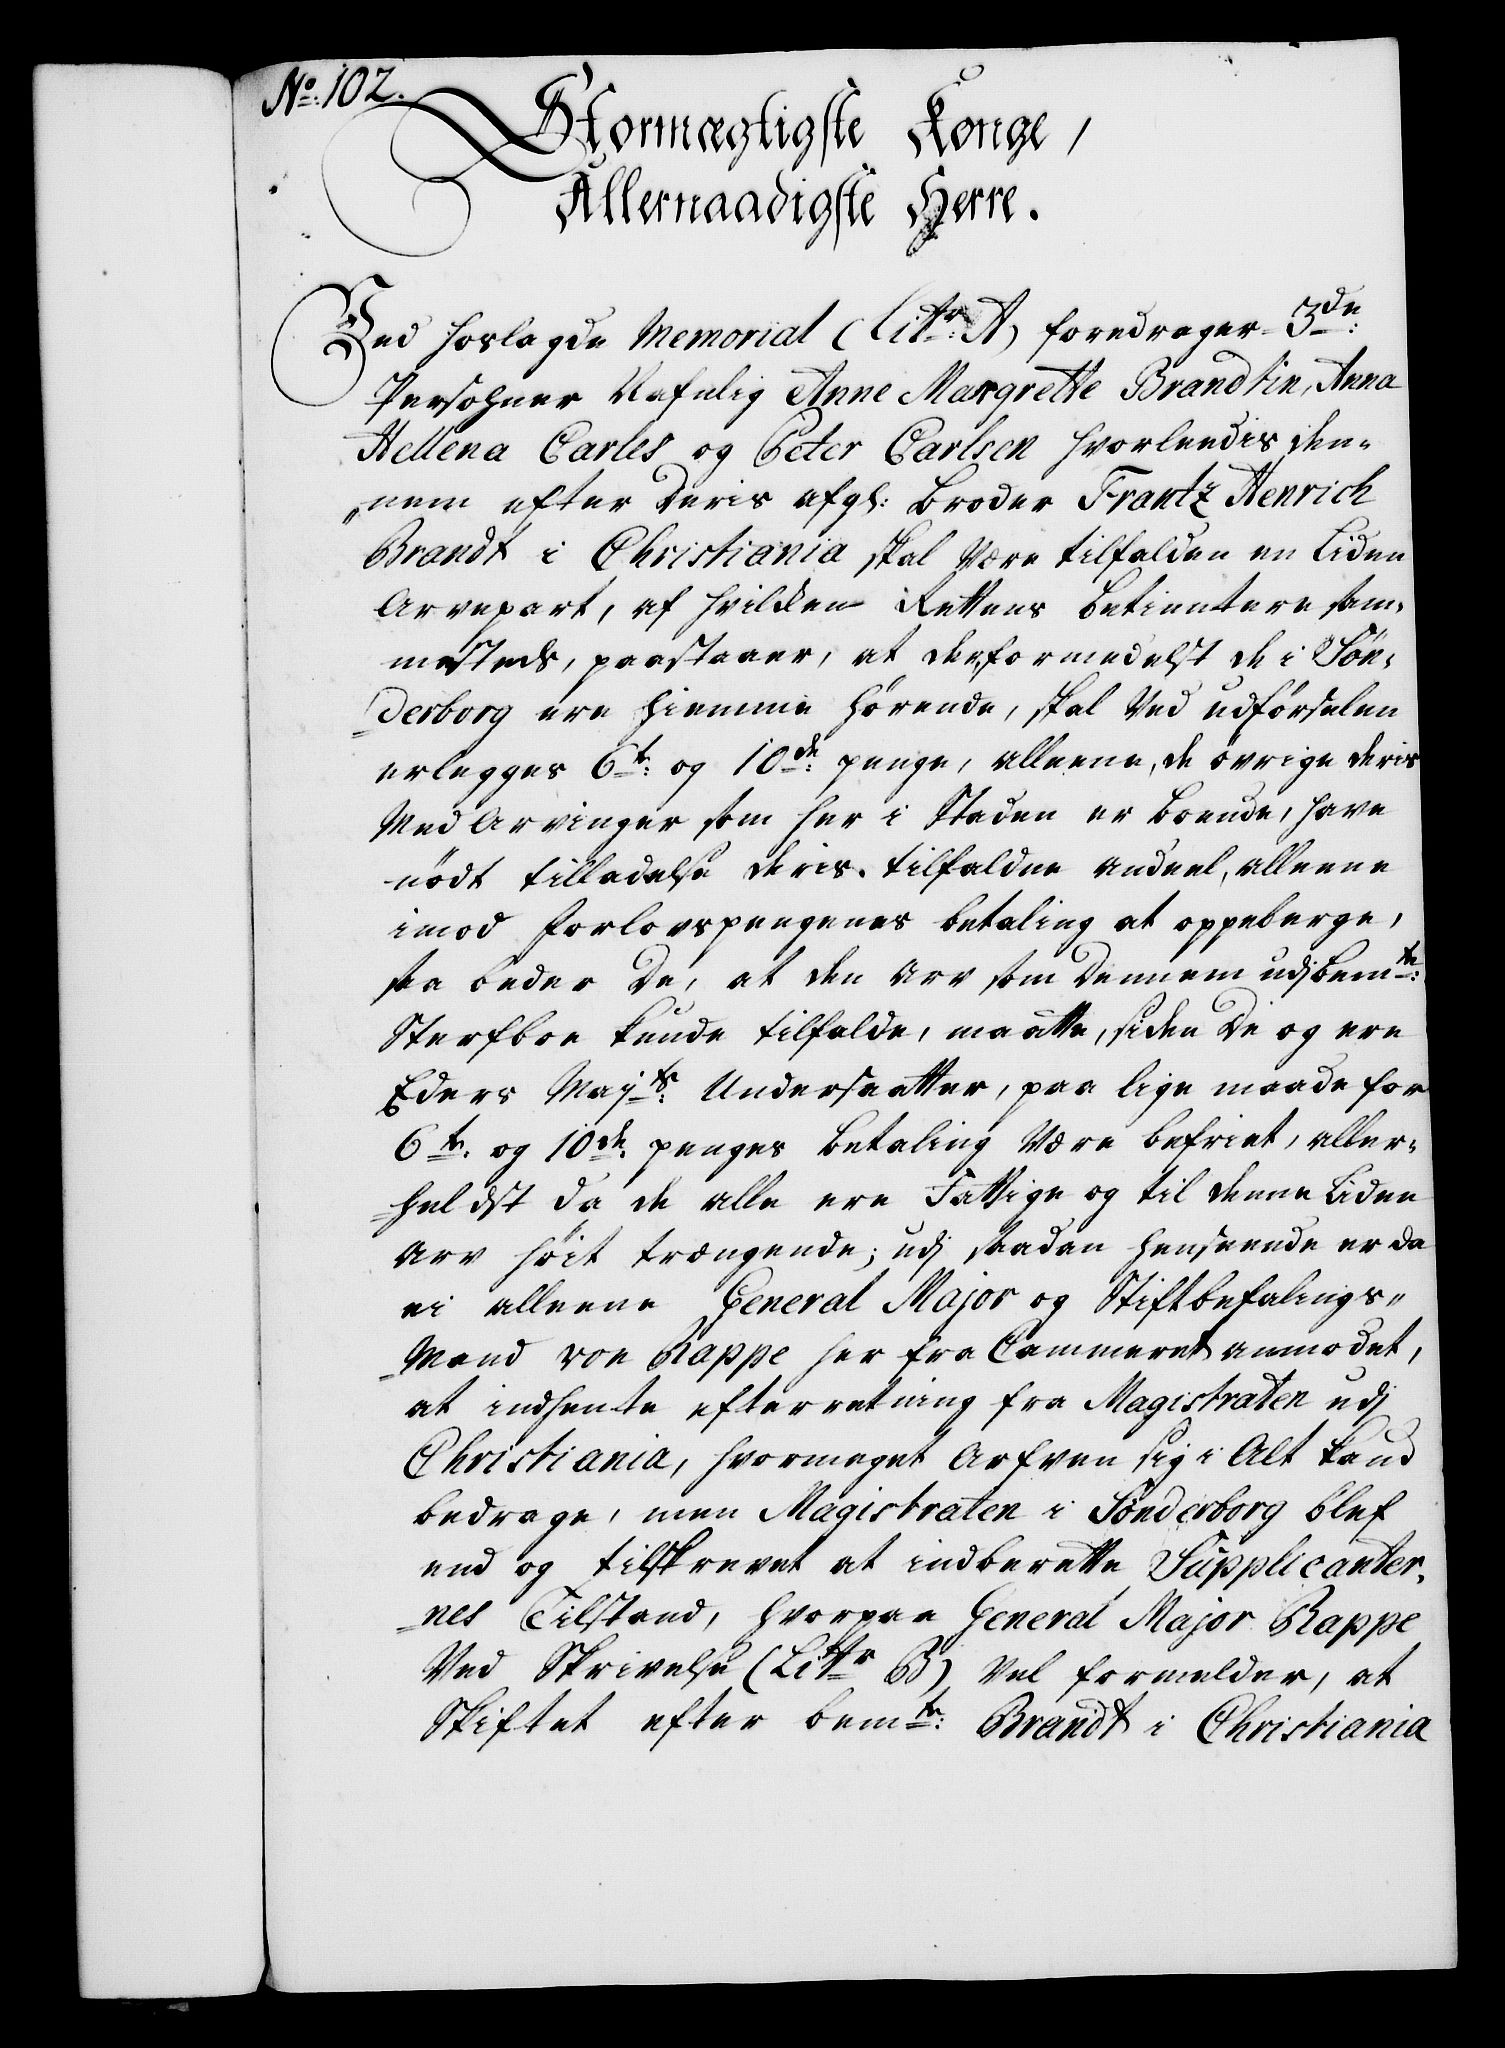 No. 102.
Stormægtigste Konge,
Allernaadigste Herre.
Ved hoslagde Memorial (Littr: A) foredrager 3de:
Persohner Nafnlig Anne Margrette Brandtin, Anna
Hellena Carles og Peter Carlsen hvorleedis den-
nem efter deris afgl: Broder Frantz Henrich
Brandt i Christiania skal være tilfalden en liden
Arvepart, af hvilcken Rettens Betienntere sam-
mesteds, paastaaer, at derformedelst de i Sön-
derborg ere hiemme hörende, skal ved udförselen
erlegges 6te: og 10de: penge, alleene, de övrige deris
Med Arvinger som her i Staden er boende, have
nödt tilladelse deris tilfaldne andeel, alleene
imod forlovspengenes betaling at oppeberge,
saa beder De, at den Arv som dennem udj bemte:
Sterfboe kunde tilfalde, maatte, siden De og ere
Eders Mayts: Undersaatter, paa lige maade for
6te. og 10de. penges betaling være befriet, aller-
heldst da de alle ere Fattige og til denne liden
Arv höit trængende; udj saadan henseende er da
ei alleene General Major og Stiftbefalings-
Mand von Rappe her fra Cammeret anmodet,
at indhente efterretning fra Magistraten udj
Christiania, hvormeget Arfven sig i Alt kand
bedrage, men Magistraten i Sönderborg blef
end og tilskrevet at indberette Supplicanter-
nes Tilstand, hvorpaa General Major Rappe
Ved Skrivelse (Littr B) vel formelder, at
Skiftet efter bemte: Brandt i Christiania